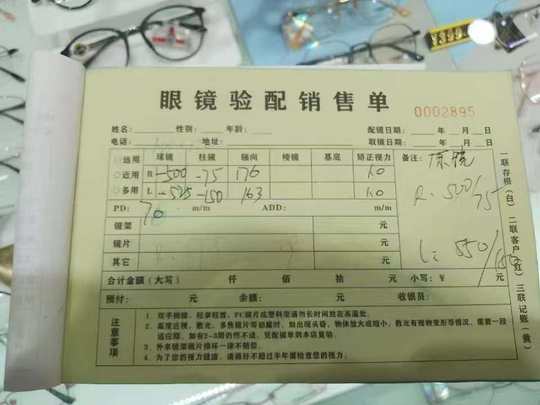 眼镜验配销售单
0002895
姓名: 性别: 年龄: 配镜日期: 年 月 日
电话: 地址: 取镜日期: 年 月 日
球镜 柱镜 轴向 棱镜 基底 矫正视力 备注: 原镜
远用
近用 R -500 -75 176 1.0 R: 500/75
多用 L -525 -150 163 1.0
PD: 70 m/m ADD: m/m
镜架 元
镜片 元 L: 550/
其它 元
合计金额(大写) 仟 佰 拾 元 小写: ¥ 元
预付: 元 余额: 元 收银员:
注意事项
1、双手摘镜,轻拿轻放,PC镜片或塑料架请勿长时间放在高温处。
2、高度近视、散光、多焦镜片等初戴时,如出现头昏、物体放大或缩小、散光有视物变形等情况,需要一段适应期,如有2-3周仍然不适,凭配镜单到本店复验。
3、外来镜架镜片损坏一律不赔偿。
4、为了您的视力健康,请最好不超过半年需检查您的视力。
一联存根(白) 二联客户(红) 三联记账(黄)